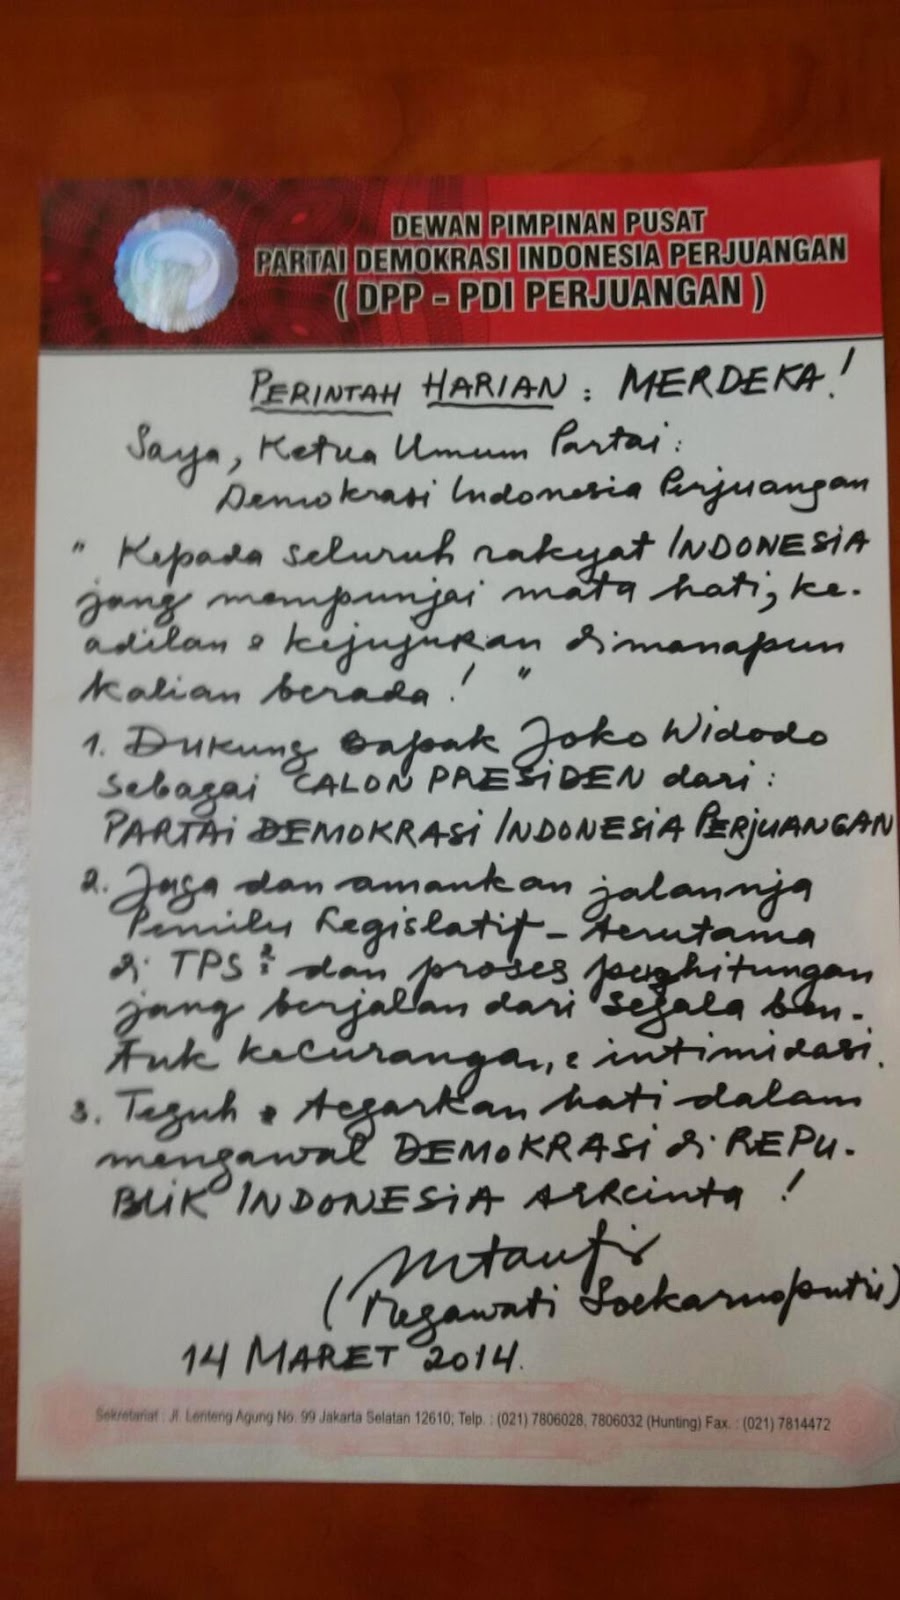 DEWAN PIMPINAN PUSAT
PARTAI DEMOKRASI INDONESIA PERJUANGAN
( DPP - PDI PERJUANGAN )
PERINTAH HARIAN : MERDEKA !
Saya, Ketua Umum Partai :
Demokrasi Indonesia Perjuangan
" Kepada seluruh rakyat INDONESIA
jang mempunjai mata hati, ke-
adilan & kejujuran dimanapun
kalian berada ! "
1. Dukung Bapak Joko Widodo
sebagai CALON PRESIDEN dari :
PARTAI DEMOKRASI INDONESIA PERJUANGAN
2. Jaga dan amankan jalannja
Pemilu Legislatif - terutama
di TPS² dan proses penghitungan
jang berjalan dari segala ben-
tuk kecurangan, & intimidasi.
3. Teguh & tegarkan hati dalam
mengawal DEMOKRASI di REPU-
BLIK INDONESIA tercinta !
(Megawati Soekarnoputri)
14 MARET 2014.
Sekretariat : Jl. Lenteng Agung No. 99 Jakarta Selatan 12610; Telp. : (021) 7806028, 7806032 (Hunting) Fax. : (021) 7814472